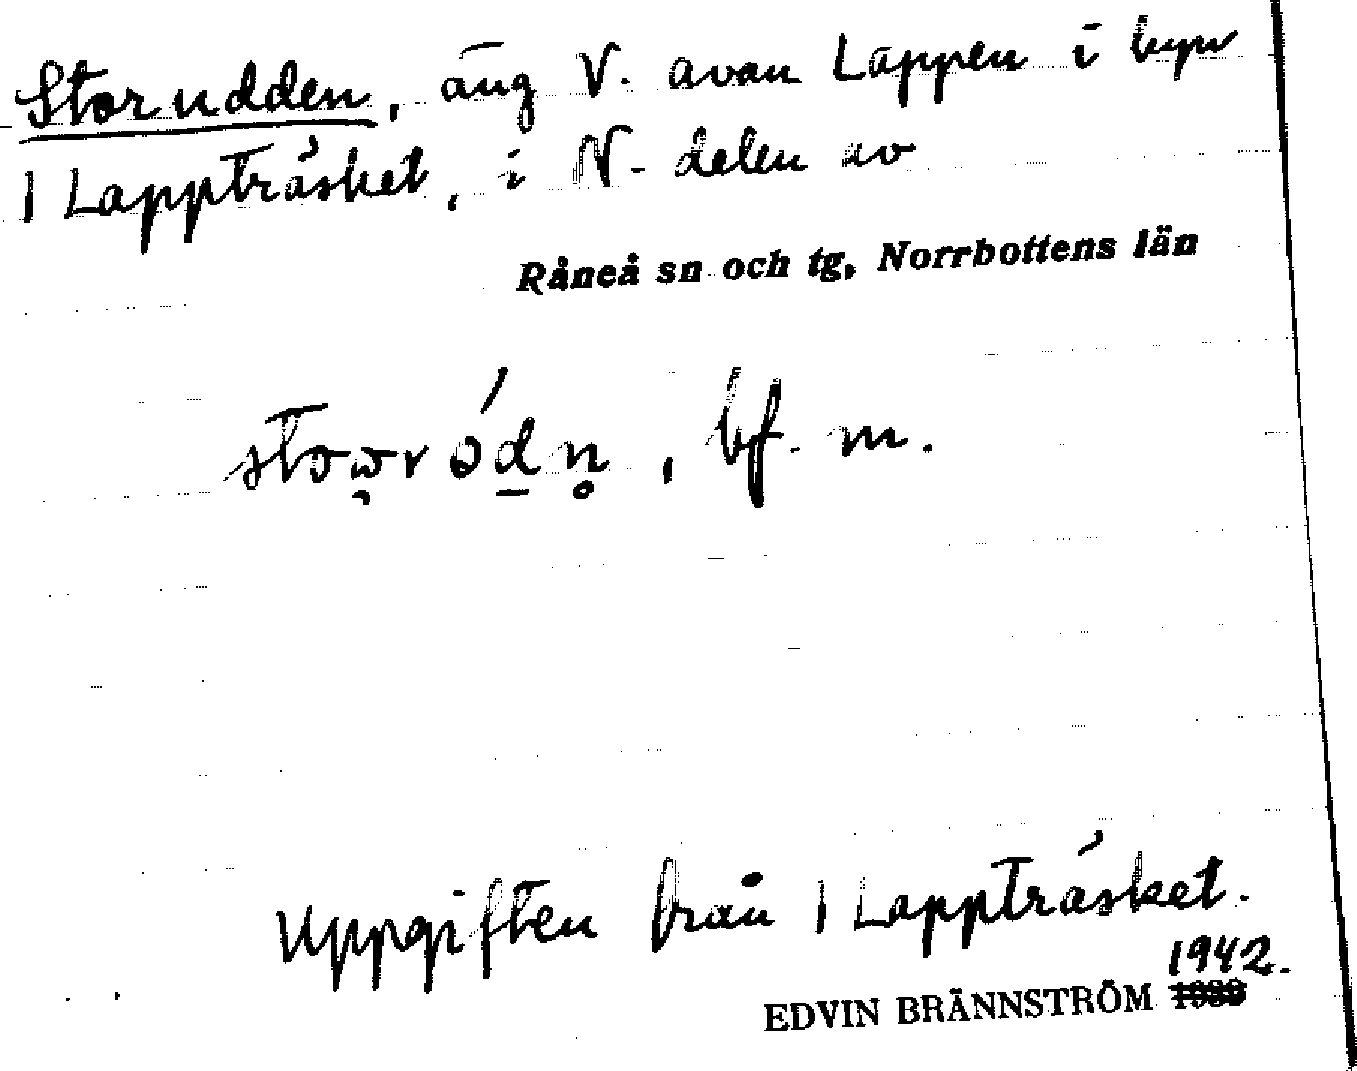 Storudden, äng V. avan Lappen i byn
1 Lappträsket, i N. delen av
Råneå sn och tg, Norrbottens län
bf. m.
Uppgiften från 1 Lappträsket.
1942.
EDVIN BRÄNNSTRÖM